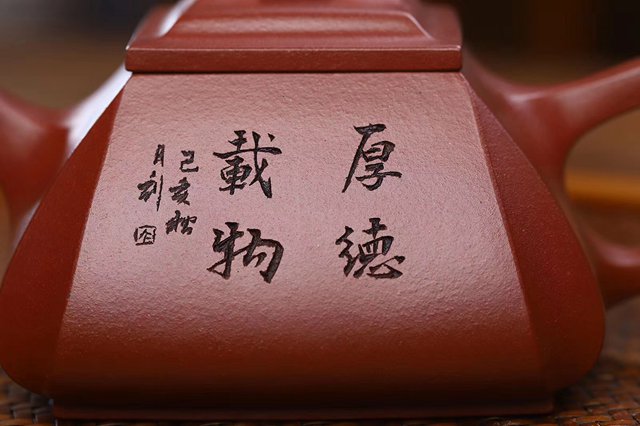 厚德
載物
己亥秋
月刻